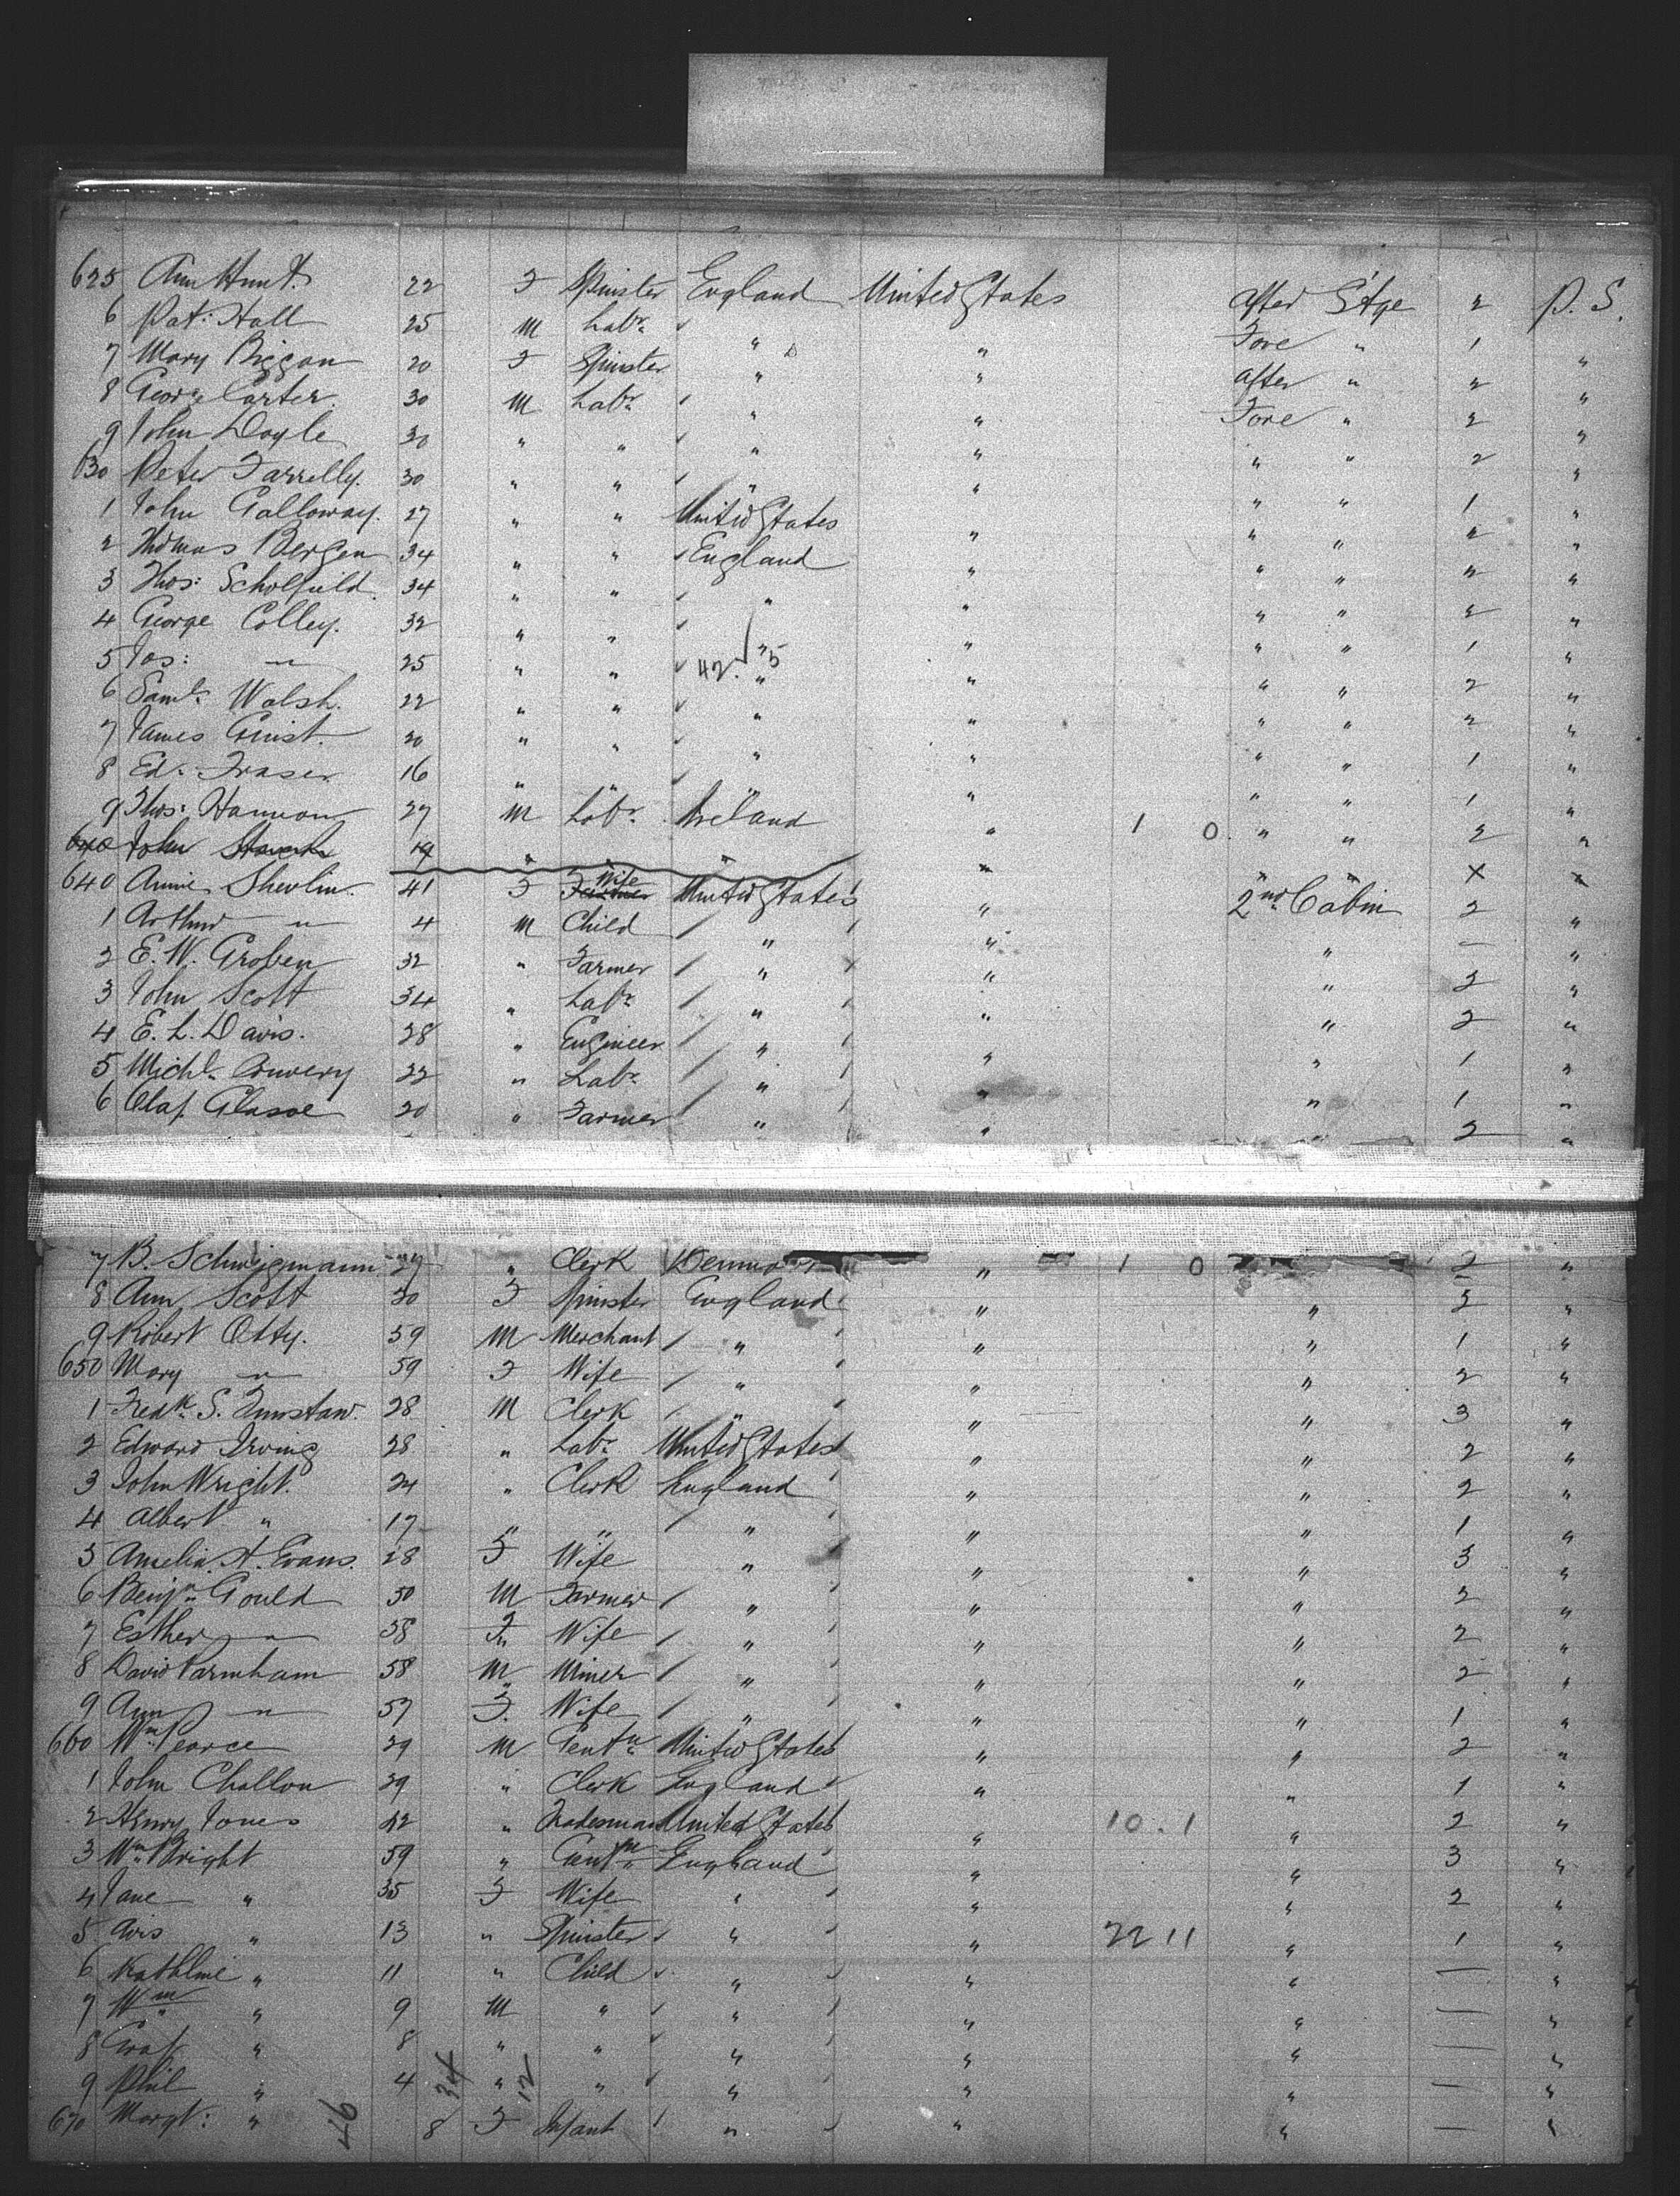 625 Ann Hunt. 22 F Spinster England United States After St'ge 2 P. S.
6 Pat: Hall 25 M Labr " " Fore " 1 "
7 Mary Biggan 20 F Spinster " " After " 2 "
8 George Carter. 30 M Labr " " Fore " 2 "
9 John Doyle 30 " " " " " " 2 "
630 Peter Farrelly. 30 " " " " " " 1 "
1 John Galloway. 27 " " United States " " " 2 "
2 Thomas Bergen 34 " " England " " " 2 "
3 Thos: Scholfield. 34 " " " " " " 2 "
4 George Colley. 32 " " " " " " 1 "
5 Jos: " 25 " " 42. 5 " " " " 2 "
6 Saml. Walsh. 22 " " " " " " 2 "
7 James 20 " " " " " " 1 "
8 Ed. Fraser 16 " " " " " " 1 "
9 Thos: Hannon 27 M Labr. Ireland " 1 0. " " 2 "
640 John 19 " " " " " " x x
640 Annie Shevlin. 41 F Wife United States " 2nd Cabin 2 "
1 Arthur " 4 M Child " " " — "
2 E. W. Groben 32 " Farmer " " " 2 "
3 John Scott 34 " Labr. " " " 2 "
4 E. L. Davis. 28 " Engineer " " " 1 "
5 Michl. 22 " Labr. " " " 1 "
6 Olaf. Glasoe 20 " Farmer " " 2 "
7 B. Schwigmann 27 " Clerk Denmark " 1 0 2 "
8 Ann Scott 30 F Spinster England " " 2 "
9 Robert Otty. 59 M Merchant " " " 1 "
650 Mary " 59 F Wife " " " 2 "
1 Fredk. S. 28 M Clerk " " " 3 "
2 Edward Irving 28 " Labr. United States " " 2 "
3 John Wright. 24 " Clerk England " " 2 "
4 Albert " 17 " " " " " 1 "
5 Amelia A. Evans. 28 F Wife " " " 3 "
6 Benjn. Gould 50 M Farmer " " " 2 "
7 Esther " 58 F Wife " " " 2 "
8 David Parnham 58 M Miner " " " 2 "
9 Ann " 57 F. Wife " " " 1 "
660 Wm. Pearce 29 M Gentn United States " " 2 "
1 John Challon 39 " Clerk England " " 1 "
2 Henry Jones 42 " Tradesman United States " 10. 1 " 2 "
3 Wm. Wright 59 " Gentn England " " 3 "
4 Jane " 35 F Wife " " " 2 "
5 Avis " 13 " Spinster " " 22 11 " 1 "
6 Kathline " 11 " Child " " " — "
7 Wm " 9 M " " " " — "
8 " 8 " " " " " — "
9 Phil " 4 34 " 12 " " " " — "
670 Margt: " 46 8 F Infant " " " — "